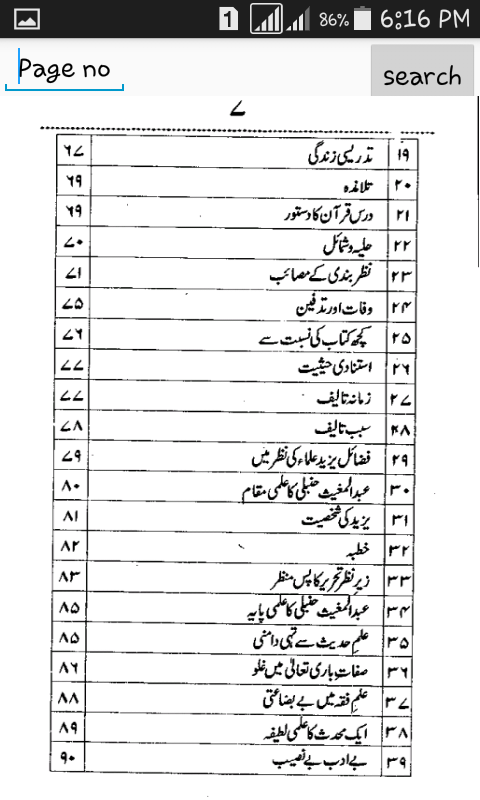 1 86% 6:16 PM
Page no search
۷
۱۹ تدریسی زندگی ۶۷
۲۰ تلامذہ ۶۹
۲۱ درس قرآن کا دستور ۶۹
۲۲ حلیہ وشمائل ۷۰
۲۳ نظر بندی کے مصائب ۷۱
۲۴ وفات اور تدفین ۷۵
۲۵ کچھ کتاب کی نسبت سے ۷۶
۲۶ استنادی حیثیت ۷۷
۲۷ زمانہ تالیف ۷۷
۲۸ سبب تالیف ۷۸
۲۹ فضائل یزید علماء کی نظر میں ۷۹
۳۰ عبدالمغیث حنبلی کا علمی مقام ۸۰
۳۱ یزید کی شخصیت ۸۱
۳۲ خطبہ ۸۲
۳۳ زیرِ نظر تحریر کا پس منظر ۸۳
۳۴ عبدالمغیث حنبلی کا علمی پایہ ۸۵
۳۵ علمِ حدیث سے تہی دامنی ۸۵
۳۶ صفاتِ باری تعالیٰ میں غلو ۸۶
۳۷ علمِ فقہ میں بے بضاعتی ۸۸
۳۸ ایک محدث کا علمی لطیفہ ۸۹
۳۹ بے ادب بے نصیب ۹۰